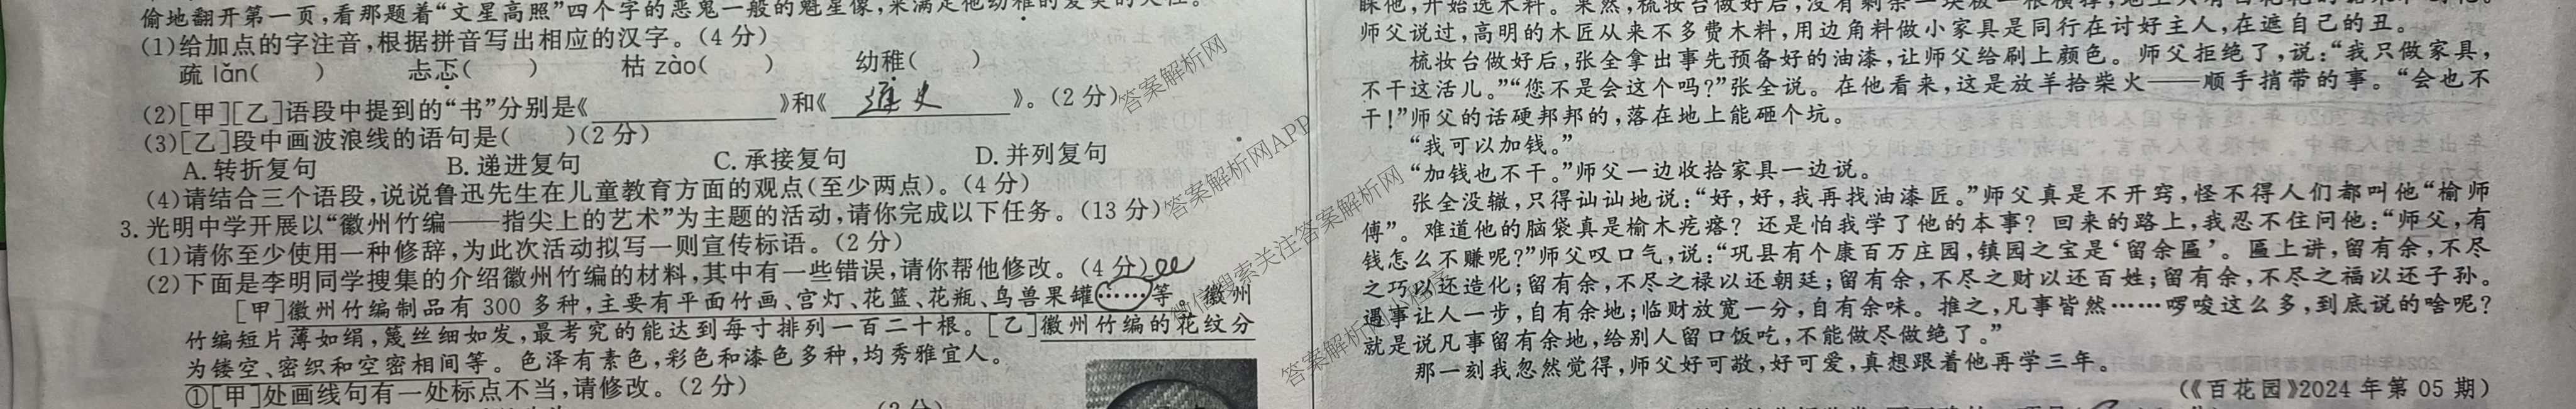 偷地翻开第一页,看那题着“文星高照”四个字的恶鬼一般的魁星像,来满足他幼稚的爱美的天性。
(1)给加点的字注音,根据拼音写出相应的汉字。(4分)
疏 lǎn(　　) 忐忑(　　) 枯 zào(　　) 幼稚(　　)
(2)[甲][乙]语段中提到的“书”分别是《　　》和《　　》。(2分)
(3)[乙]段中画波浪线的语句是(　　)(2分)
A.转折复句 B.递进复句 C.承接复句 D.并列复句
(4)请结合三个语段,说说鲁迅先生在儿童教育方面的观点(至少两点)。(4分)
3.光明中学开展以“徽州竹编——指尖上的艺术”为主题的活动,请你完成以下任务。(13分)
(1)请你至少使用一种修辞,为此次活动拟写一则宣传标语。(2分)
(2)下面是李明同学搜集的介绍徽州竹编的材料,其中有一些错误,请你帮他修改。(4分)
[甲]徽州竹编制品有300多种,主要有平面竹画、宫灯、花篮、花瓶、鸟兽果罐……等。徽州
竹编短片薄如绢,篾丝细如发,最考究的能达到每寸排列一百二十根。[乙]徽州竹编的花纹分
为镂空、密织和空密相间等。色泽有素色,彩色和漆色多种,均秀雅宜人。
①[甲]处画线句有一处标点不当,请修改。(2分)
(2分)
眯他,开始选木料。果然,梳妆台做好后,没有剩余一块板一根横撑,
师父说过,高明的木匠从来不多费木料,用边角料做小家具是同行在讨好主人,在遮自己的丑。
梳妆台做好后,张全拿出事先预备好的油漆,让师父给刷上颜色。师父拒绝了,说:“我只做家具,
不干这活儿。”“您不是会这个吗?”张全说。在他看来,这是放羊拾柴火——顺手捎带的事。“会也不
干!”师父的话硬邦邦的,落在地上能砸个坑。
“我可以加钱。”
“加钱也不干。”师父一边收拾家具一边说。
张全没辙,只得讪讪地说:“好,好,我再找油漆匠。”师父真是不开窍,怪不得人们都叫他“榆师
傅”。难道他的脑袋真是榆木疙瘩?还是怕我学了他的本事?回来的路上,我忍不住问他:“师父,有
钱怎么不赚呢?”师父叹口气,说:“巩县有个康百万庄园,镇园之宝是‘留余匾’。匾上讲,留有余,不尽
之巧以还造化;留有余,不尽之禄以还朝廷;留有余,不尽之财以还百姓;留有余,不尽之福以还子孙。
遇事让人一步,自有余地;临财放宽一分,自有余味。推之,凡事皆然……啰唆这么多,到底说的啥呢?
就是说凡事留有余地,给别人留口饭吃,不能做尽做绝了。”
那一刻我忽然觉得,师父好可敬,好可爱,真想跟着他再学三年。
(《百花园》2024年第05期)
答案解析网
答案解析网APP
微信搜索关注答案解析网
答案解析网小程序